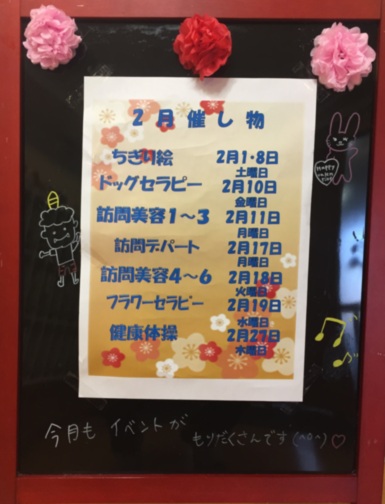 2月催し物
ちぎり絵 2月1・8日
土曜日
ドッグセラピー 2月10日
金曜日
訪問美容1〜3 2月11日
月曜日
訪問デパート 2月17日
月曜日
訪問美容4〜6 2月18日
火曜日
フラワーセラピー 2月19日
水曜日
健康体操 2月27日
木曜日
今月も イベントが
もりだくさんです(^o^)♡